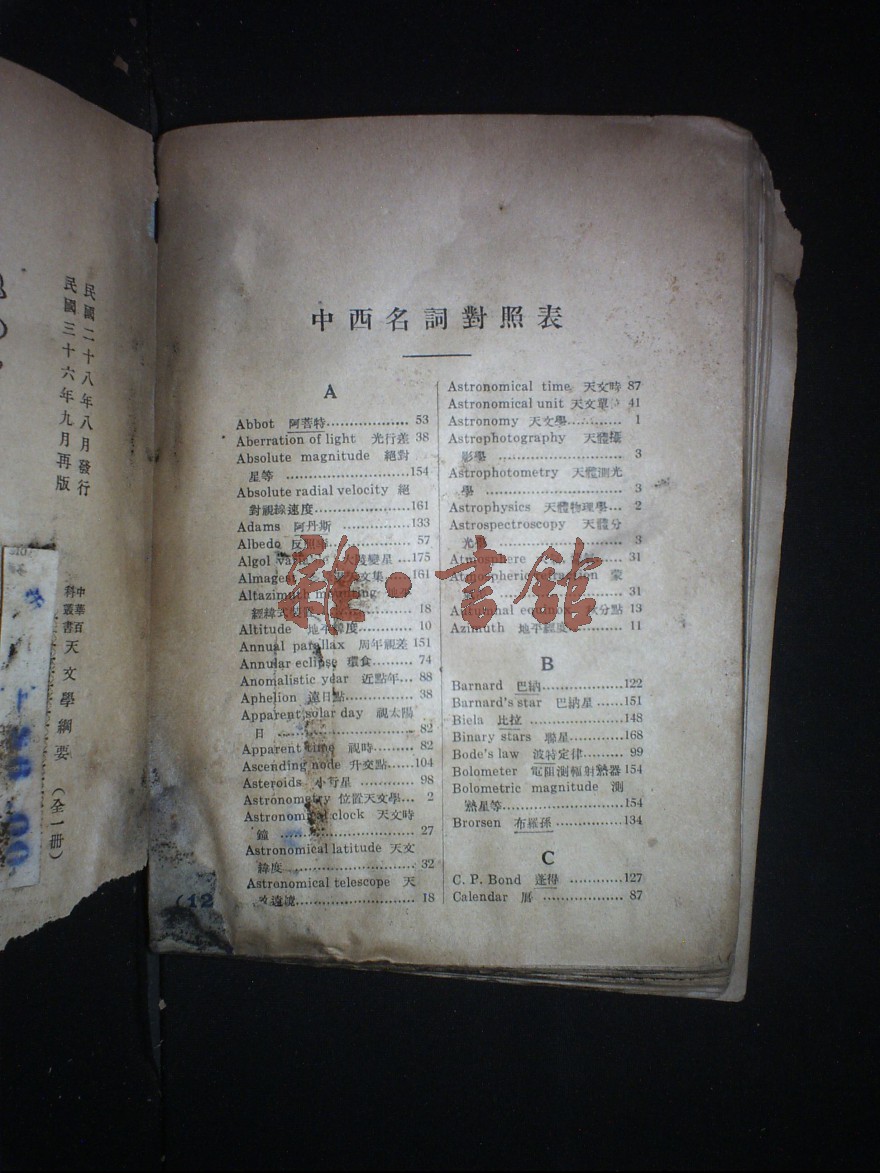 民國二十八年八月發行
民國三十六年九月再版
中華百
科叢書
天文學綱要
(全一册)
中西名詞對照表
A
Abbot 阿菩特 53
Aberration of light 光行差 38
Absolute magnitude 絕對
星等 154
Absolute radial velocity 絕
對視線速度 161
Adams 阿丹斯 133
Albedo 57
Algol 變星 175
文集 161
Altazimuth mounting
經緯 18
Altitude 地平緯度 10
Annual parallax 周年視差 151
Annular eclipse 環食 74
Anomalistic year 近點年 88
Aphelion 遠日點 38
Apparent solar day 視太陽
日 82
Apparent time 視時 82
Ascending node 升交點 104
Asteroids 小行星 98
Astronometry 位置天文學 2
Astronomical clock 天文時
鐘 27
Astronomical latitude 天文
緯度 32
Astronomical telescope 天
遠鏡 18
(12
Astronomical time 天文時 87
Astronomical unit 天文單 41
Astronomy 天文學 1
Astrophotography 天體攝
影學 3
Astrophotometry 天體測光
學 3
Astrophysics 天體物理學 2
Astrospectroscopy 天體分
光 3
Atmosphere 31
Atmospheric refraction 蒙
31
Autumnal equinox 秋分點 13
Azimuth 地平經度 11
B
Barnard 巴納 122
Barnard's star 巴納星 151
Biela 比拉 148
Binary stars 聯星 168
Bode's law 波特定律 99
Bolometer 電阻測輻射熱器 154
Bolometric magnitude 測
熱星等 154
Brorsen 布羅孫 134
C
C. P. Bond 蓬得 127
Calendar 曆 87
雜·書館